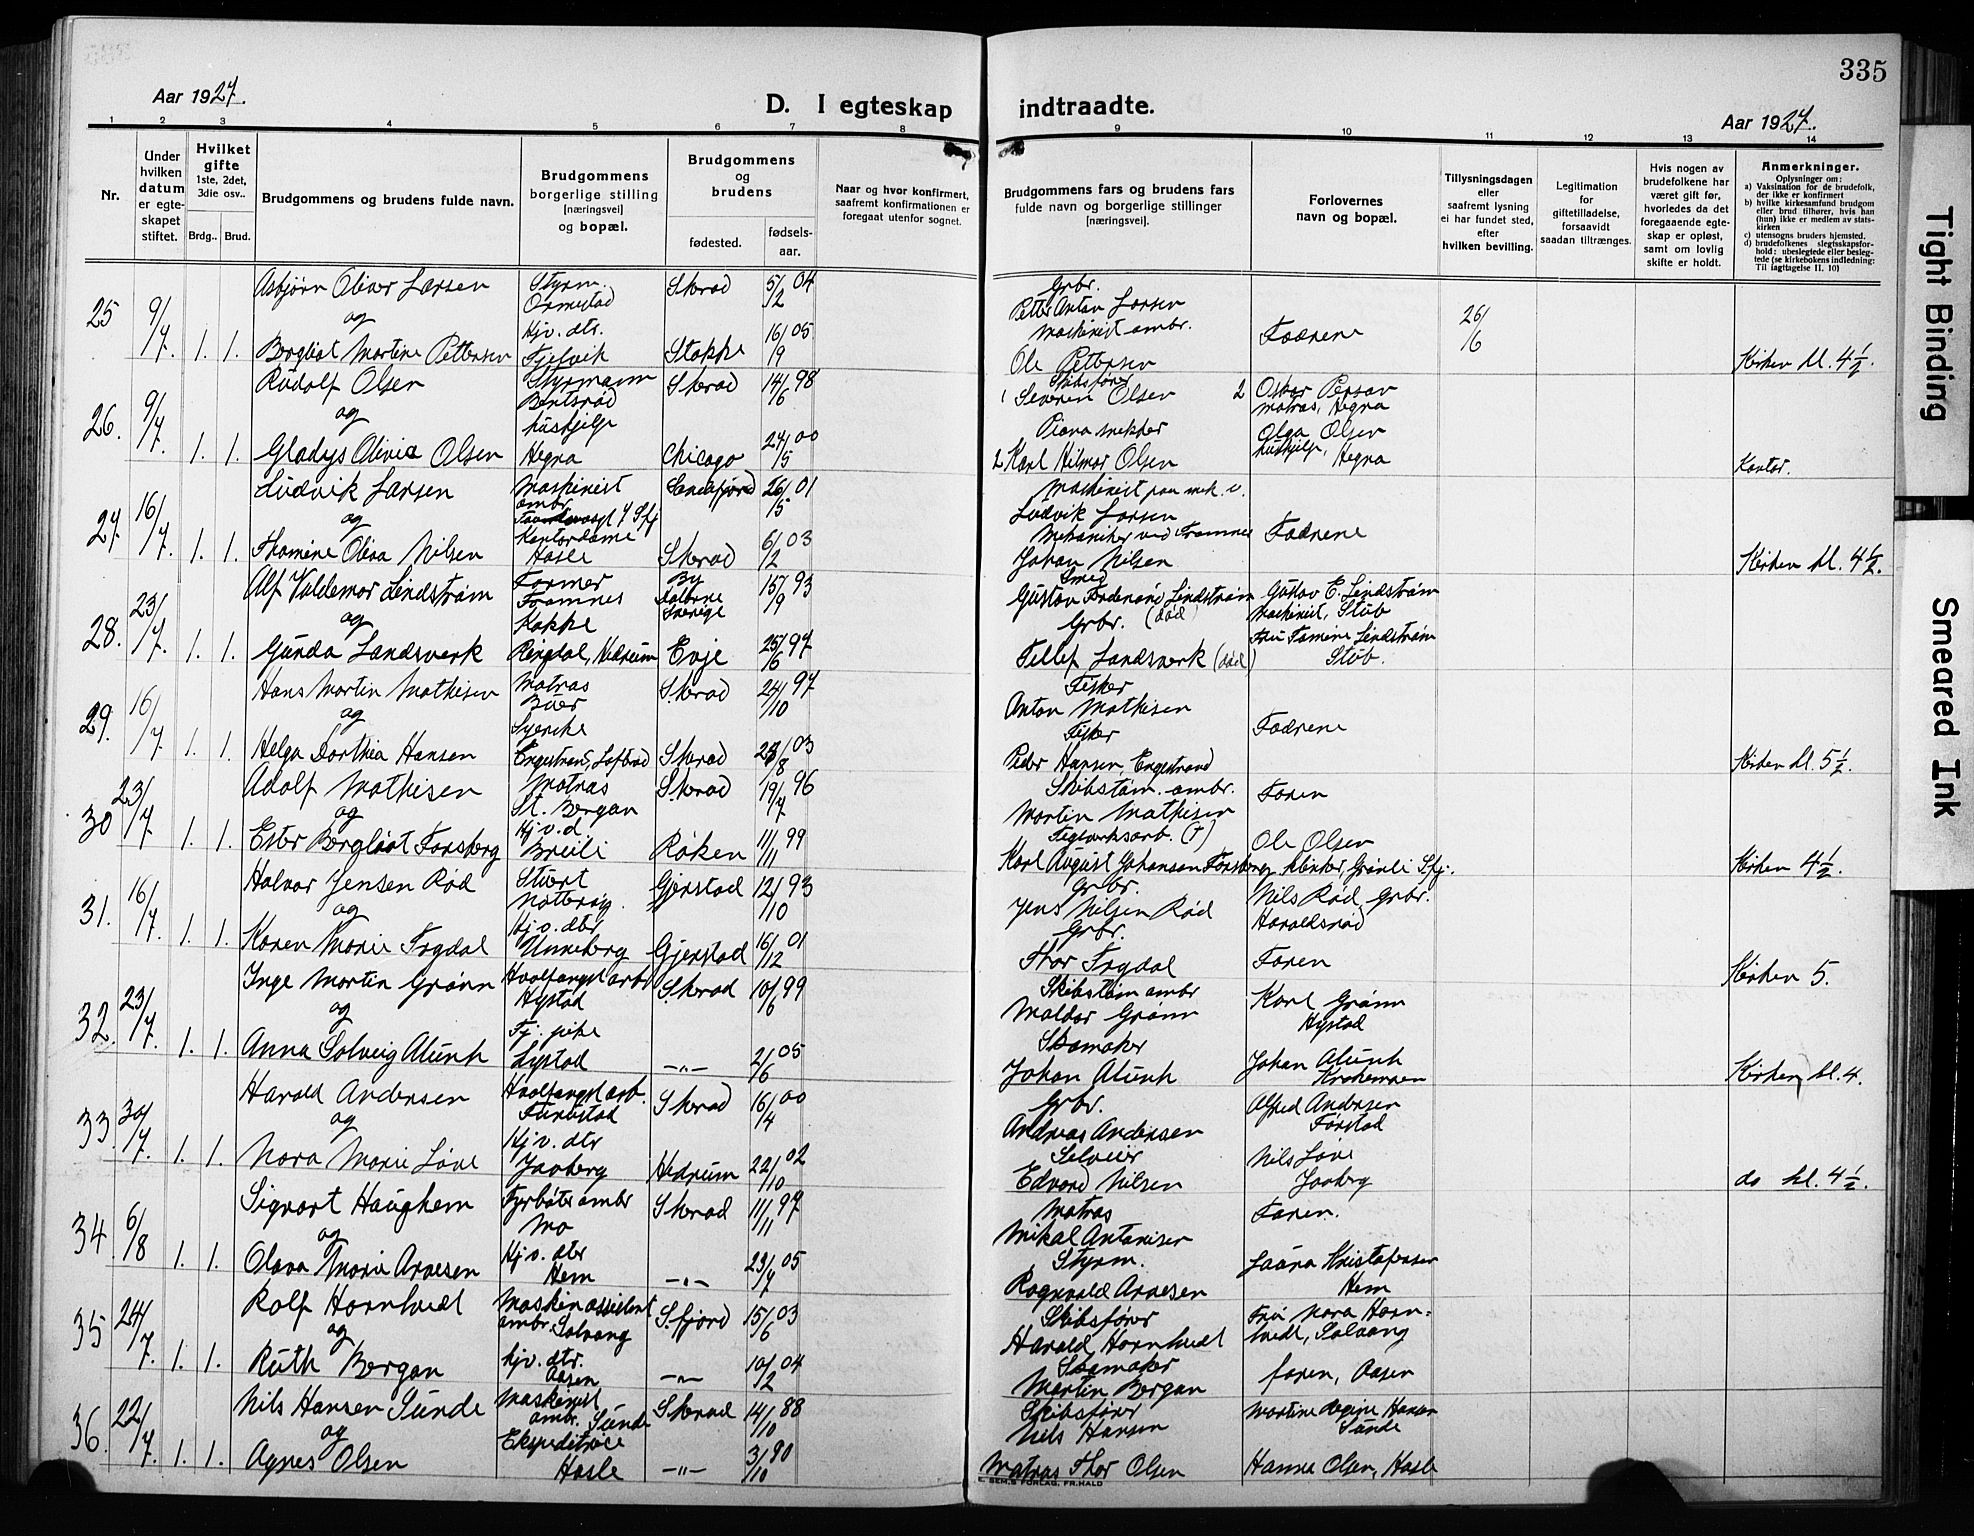 335
Aar 1927.
D. I egteskap indtraadte.
Aar 1927.
1 2 3 4 5 6 7 8 9 10 11 12 13 14
Nr.
Under hvilken datum er egte-skapet stiftet.
Hvilket gifte
1ste, 2det, 3die osv..
Brdg.. Brud.
Brudgommens og brudens fulde navn.
Brudgommens borgerlige stilling
[næringsvei]
og bopæl.
Brudgommens og brudens
fødested.
fødsels-aar.
Naar og hvor konfirmert, saafremt konfirmationen er foregaat utenfor sognet.
Brudgommens fars og brudens fars fulde navn og borgerlige stillinger
[næringsvei].
Forlovernes navn og bopæl.
Tillysningsdagen eller saafremt lysning ei har fundet sted, efter hvilken bevilling.
Legitimation for giftetilladelse, forsaavidt saadan tiltrænges.
Hvis nogen av brudefolkene har været gift før, hvorledes da det foregaaende egte-skap er opløst, samt om lovlig skifte er holdt.
Anmerkninger.
Oplysninger om:
a) Vaksination for de brudefolk, der ikke er konfirmert
b) hvilke kirkesamfund brudgom eller brud tilhører, hvis han (hun) ikke er medlem av stats-kirken
c) utensogns bruders hjemsted.
d) brudefolkenes slegtsskapsfor-hold: ubeslegtede eller beslegtede (se kirkebokens indledning: Til iagttagelse II, 10)
25 9/7. 1. 1. Asbjørn Oliver Larsen
og
Bergliot Martine Pettersen
Styrm.
Ormestad
Hj.v. dtr.
Fjelvik
Skerad 5/2 04
Stokke 16/9 05
Grbr.
Petter Anton Larsen
Maskinist ambr.
Ole Pettersen
Fædrene
26/6
Kirken kl. 4½.
26. 9/7. 1. 1. Rudolf Olsen
og
Gladys Olivia Olsen
Styrmann
Bentsrød
hushjelp
Hegna
Skerad 14/6 98
Chicago 24/5 00
Skibsfører
1 Severin Olsen
Piano
2 Karl Hilmar Olsen
2 Oskar
matros, Hegna
Olga Olsen
hushjelp, Hegna
Kontor.
27. 16/7. 1. 1. Ludvik Larsen
og
Thomine Oliva Nilsen
Maskinist
ambr.
Kontordame
Hasle
Sandefjord 26/5 01
Skerad 6/2 03
Maskinist paa mek. v.
Ludvik Larsen
Mekaniker ved Framnes
Johan Nilsen
Fædrene
Kirken kl. 4½.
28. 23/7. 1. 1. Alf Valdemar Lindstrøm
og
Gunda Landsverk
Former
Framnes
Kokke
Ringdal, Hedrum
By
Sverige 15/9 93
Evje 25/6 97
Smed
Gustav Ferdinand Lindstrøm
Grbr. (død)
Tellef Landsverk (død)
Gustav E. Lindstrøm
Maskinist, Stub
Fru Tomine Lindstrøm
Stub.
29. 16/7. 1. 1. Hans Martin Mathisen
og
Helga Dorthea Hansen
Matros
Buer
Syerske
Engestrand,
Skerad 24/10 97
Skerad 03
Fisker
Anton Mathisen
Fisker
Peder Hansen, Engestrand
Fædrene
Kirken kl. 5½.
30 23/7. 1. 1. Adolf Mathisen
og
Ester Bergliot Forsberg
Matros
St. Bergan
Hj.v.d.
Breili
Skerad 19/7 96
Røken 11/11 99
Skibstøm. ambr.
Martin Mathisen
Teglverksarb. (†)
Karl August Johansen Forsberg
Faren
Ole Olsen
Klinker, Grønli Sfj.
Kirken 4½.
31. 16/7. 1. 1. Halvor Jensen Rød
og
Karen Marie Trydal
Stuert
Nøtterøy.
Hj.v. dtr
Unneberg
Gjerstad 12/10 93
Gjerstad 16/12 01
Grbr.
Jens Nilsen Rød
Grbr.
Thor Trydal
Nils Rød, Grbr.
Haraldsrød
Faren
Kirken 5.
32. 23/7. 1. 1. Inge Martin Grønn
og
Anna Solveig Alunk
Hvalfangst arb
Hystad
Fj. pike
Lystad
Skerad 10/6 99
—"— 2/6 05
Skibstøm ambr
Maldor Grønn
Skomaker
Johan Alunk
Karl Grønn
Hystad
Johan Alunk
Krokemoen
Kirken kl. 4.
33 30/7. 1. 1. Harald Andersen
og
Nora Marie Løve
Hvalfangst arb.
Hj.v. dtr
Jaaberg
Skerad 16/4 00
Hedrum 22/10 02
Grbr.
Andreas Andersen
Selveier
Edvard Nilsen
Alfred Andersen
Nils Løve
Jaaberg
do kl. 4½.
34 6/8 1. 1. Sigvart Haughem
og
Olava Marie Arnesen
Fyrbøter ambr
Mo
Hj.v. dtr
Hem
Skerad 11/11 97
—"— 23/7 05
Matros
Mikal Antonisen
Styrm.
Ragnvald Arnesen
Faren.
Laura Kristofersen
Hem
35 24/7. 1. 1. Rolf Hornhvedt
og
Ruth Bergan
Maskinassistent
ambr. Solvang
hjv. dtr.
Aasen
S.fjord 15/6 03
—"— 10/2 04
Skibsfører
Harald Hornhvedt
Skomaker
Martin Bergan
Fru Nora Horn-
hvedt, Solvang
faren, Aasen
36. 22/7. 1. 1. Nils Hansen Sunde
og
Agnes Olsen
Maskinist
ambr. Sunde
Ekspeditrice
Hasle
Skerad 14/10 88
—"— 3/10 90
Skibsfører
Nils Hansen
Matros Thor Olsen
Martine Regine Hansen
Sunde
Hanna Olsen, Hasle
E. SEM.S FORLAG, FR.HALD
Tight Binding
Smeared Ink